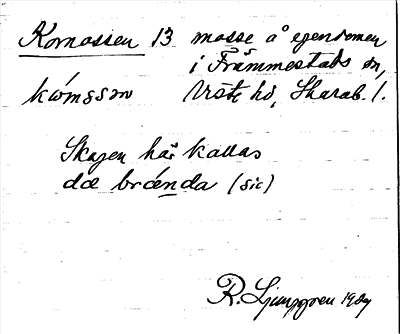 Kornossen 13 mosse å egendomen
i Främmestads sn,
kómosson Viste hd, Skarab. l.
Skogen här kallas
dæ brǽnda (sic)
R. Ljunggren 1929